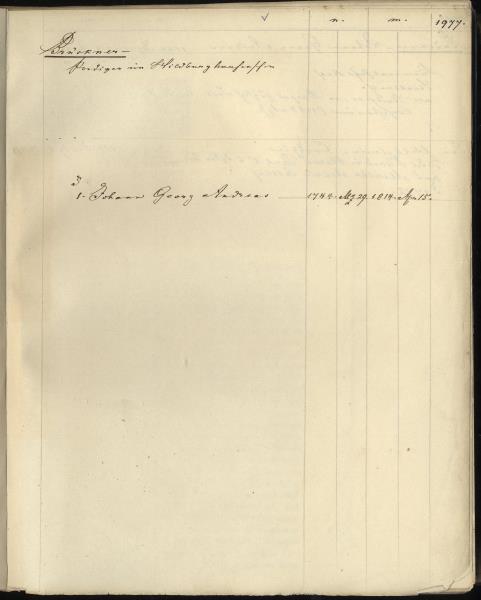 n. m. 1977.
Brückner –
Prediger im Hildburghausischen
1. Johann Georg Andreas 1744. Mz 29. 1814. Apr 15.